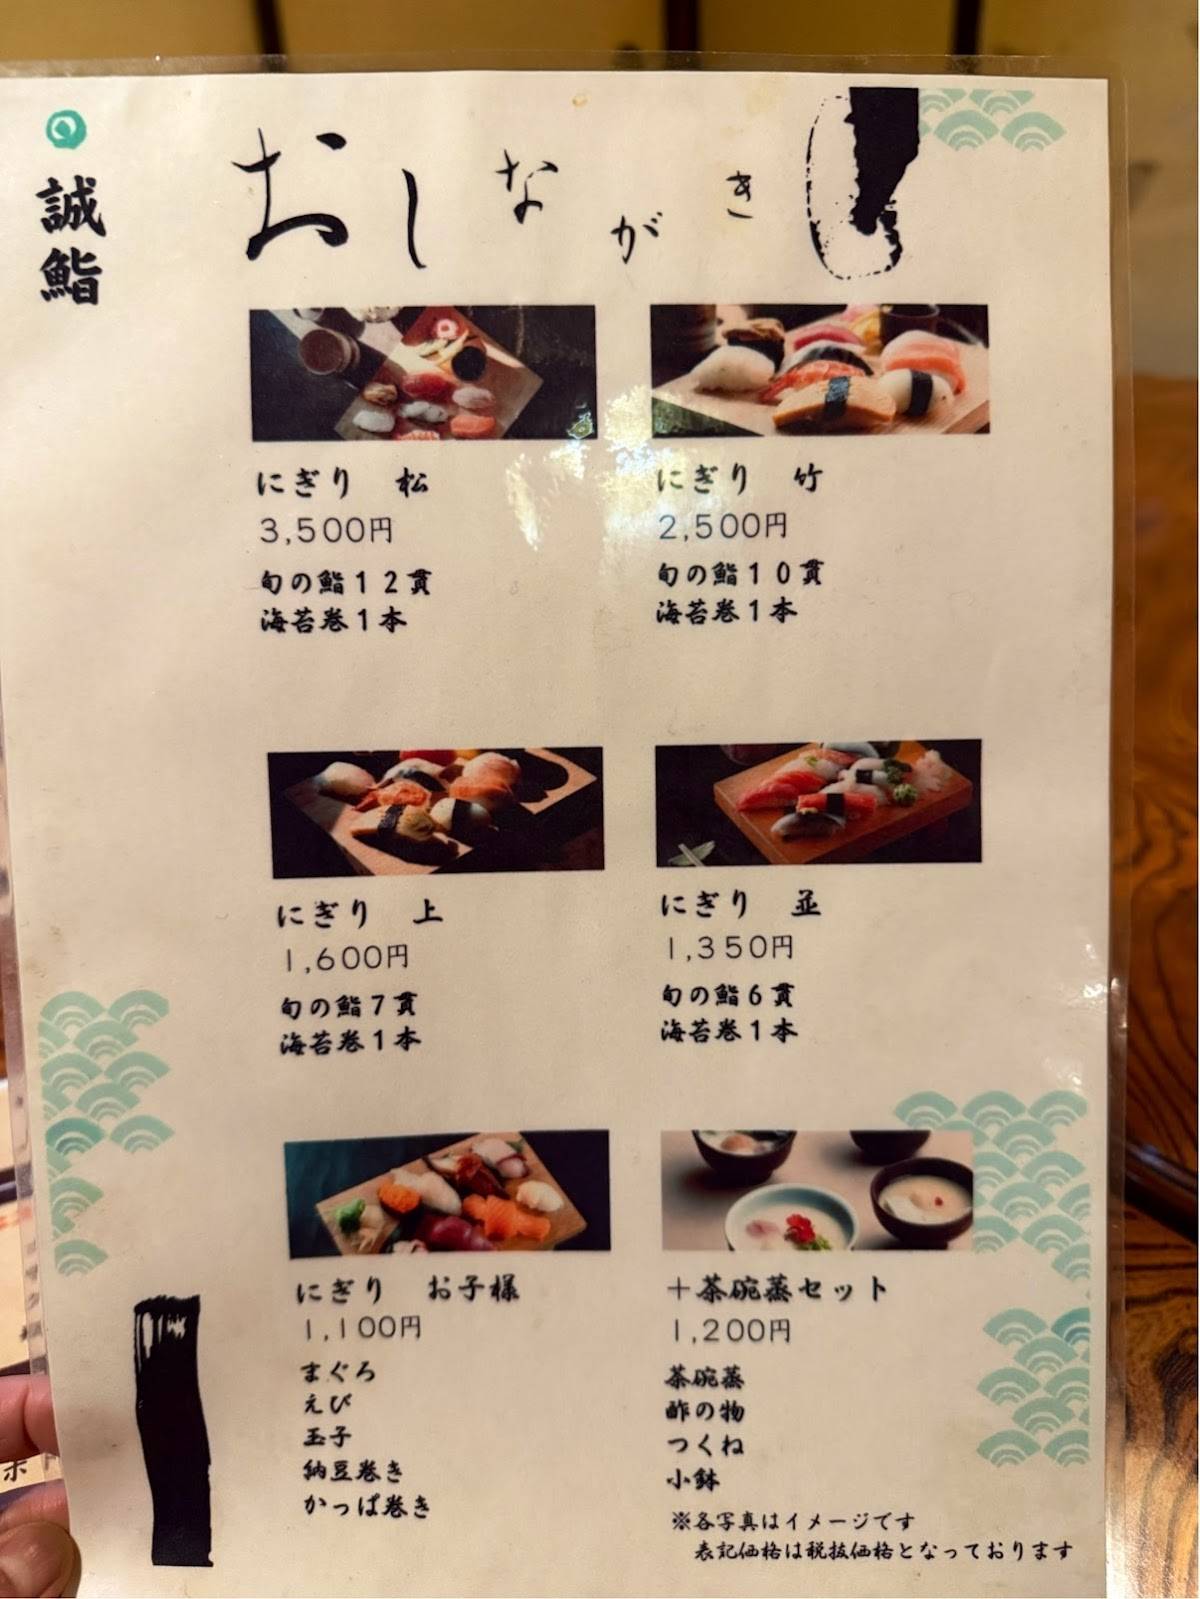 誠鮨
おしながき
にぎり 松
3,500円
旬の鮨12貫
海苔巻1本
にぎり 竹
2,500円
旬の鮨10貫
海苔巻1本
にぎり 上
1,600円
旬の鮨7貫
海苔巻1本
にぎり 並
1,350円
旬の鮨6貫
海苔巻1本
にぎり お子様
1,100円
まぐろ
えび
玉子
納豆巻き
かっぱ巻き
+茶碗蒸セット
1,200円
茶碗蒸
酢の物
つくね
小鉢
※各写真はイメージです
表記価格は税抜価格となっております